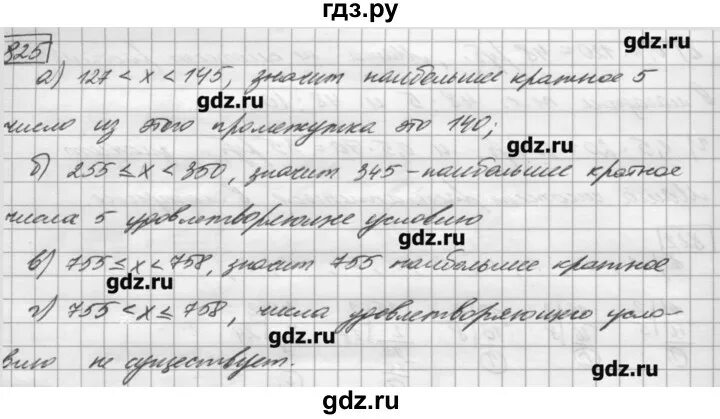 гдз.ру
825
а) 127 < x < 145, значит наибольшее кратное 5
gdz.ru
gdz.ru
число из этого промежутка это 140;
gdz.ru
б) 255 ≤ x < 350, значит 345 - наибольшее кратное
gdz.ru
числа 5 удовлетворяющие условию
gdz.ru
в) 755 ≤ x < 758, значит 755 наибольшее кратное
gdz.ru
г) 755 < x ≤ 758, числа удовлетворяющего усло-
gdz.ru
gdz.ru
вию не существует.
gdz.ru
gdz.ru